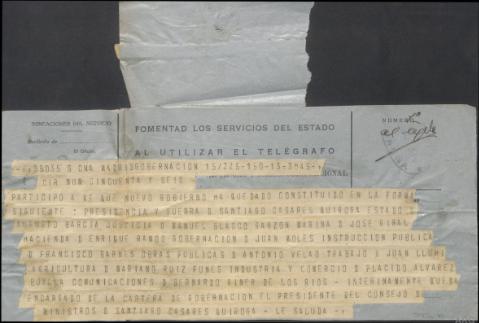 INDICACIONES DEL SERVICIO
FOMENTAD LOS SERVICIOS DEL ESTADO
AL UTILIZAR EL TELÉGRAFO
al
35035 S CNA MADRIDGOBERNACION 15/225-150-13-3045-
CIR NUM CINCUENTA Y SEIS
PARTICIPO A VE QUE NUEVO GOBIERNO HA QUEDADO CONSTITUIDO EN LA FORMA
SIGUIENTE : PRESIDENCIA Y GUERRA D SANTIAGO CASARES QUIROGA ESTADO
AUGUSTO BARCIA JUSTICIA D MANUEL BLASCO GARZON MARINA D JOSE GIRAL
HACIENDA D ENRIQUE RAMOS GOBERNACION D JUAN MOLES INSTRUCCION PUBLICA
D FRANCISCO BARNES OBRAS PUBLICAS D ANTONIO VELAO TRABAJO D JUAN LLUHI
AGRICULTURA D MARIANO RUIZ FUNES INDUSTRIA Y COMERCIO D PLACIDO ALVAREZ
BUYLLA COMUNICACIONES D BERNARDO GINER DE LOS RIOS - INTERINAMENTE QUEDA
ENCARGADO DE LA CARTERA DE GOBERNACION EL PRESIDENTE DEL CONSEJO DE
MINISTROS D SANTIAGO CASARES QUIROGA - LE SALUDA -